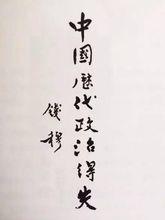 中國歷代政治得失
錢穆